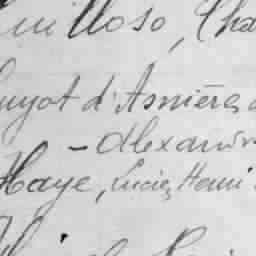 uilloso, Cha
uyot d'Asnières
- Alexan
Haye, Lucien Henri